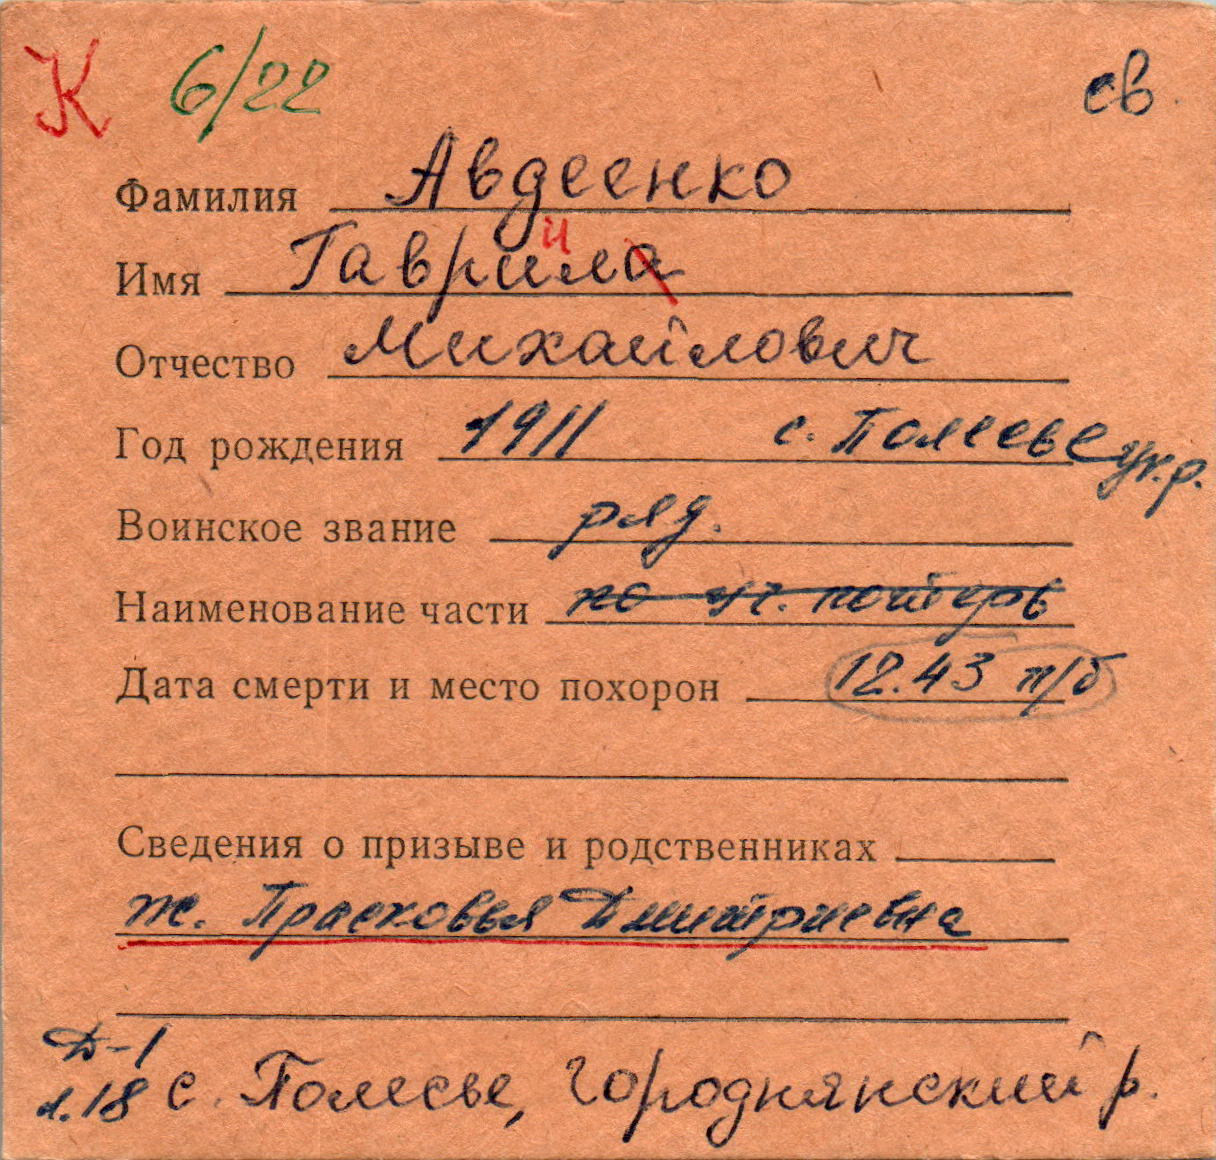 К 6/22 св.
Фамилия Авдеенко
и
Имя Гаврила
Отчество Михайлович
Год рождения 1911 с. Полесье ук.р.
Воинское звание ряд.
Наименование части
Дата смерти и место похорон 12.43 п/б
Сведения о призыве и родственниках
ж. Прасковья Дмитриевна
Д-1
л.18 с. Полесье, Городнянский р.